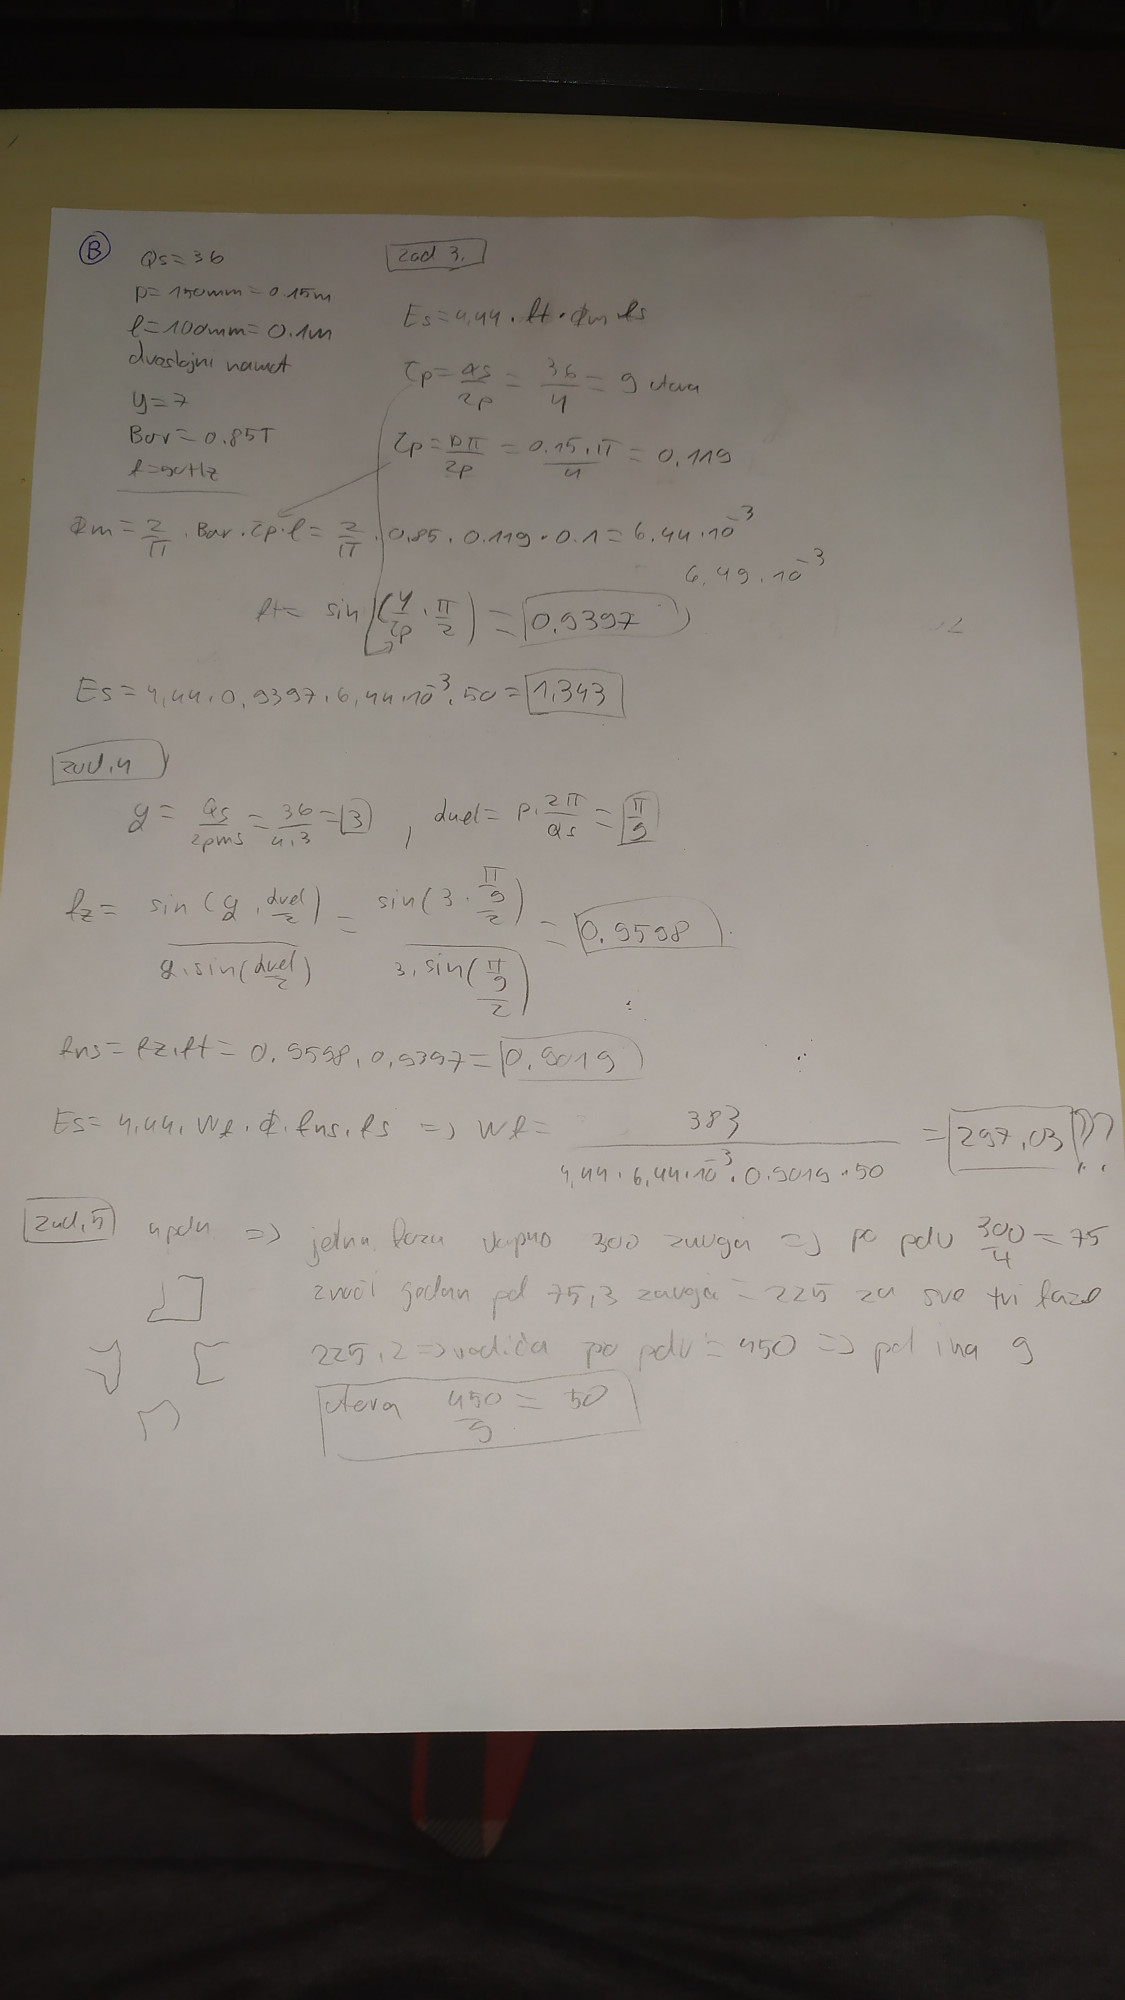 B
Qs=36
zad 3.
D=150mm=0.15m
l=100mm=0.1m
dvoslojni namot
y=7
Bδv=0.85T
f=50Hz
Es=4,44·ft·Φm·fs
τp=Qs/2p=36/4=9 utora
τp=Dπ/2p=0.15·π/4=0,119
Φm=2/π·Bδv·τp·l=2/π·0,85·0.119·0.1=6,44·10^-3
6,49·10^-3
ft=sin(y/τp·π/2)=0,9397
Es=4,44·0,9397·6,44·10^-3·50=1,343
zad.4
q=Qs/2pms=36/4·3=3, αel=p·2π/Qs=π/9
fz=sin(q·αel/2)/q·sin(αel/2)=sin(3·π/9/2)/3·sin(π/9/2)=0,9598
fns=fz·ft=0,9598·0,9397=0,9019
Es=4,44·Wf·Φ·fns·fs => Wf=383/4,44·6,44·10^-3·0.9019·50=297,03??
zad.5 4 pola => jedna faza ukupno 300 zavoja => po polu 300/4=75
znači jedan pol 75·3 zavoja=225 za sve tri faze
225·2=>vodiča po polu=450=>pol ima 9
utora 450/9=50